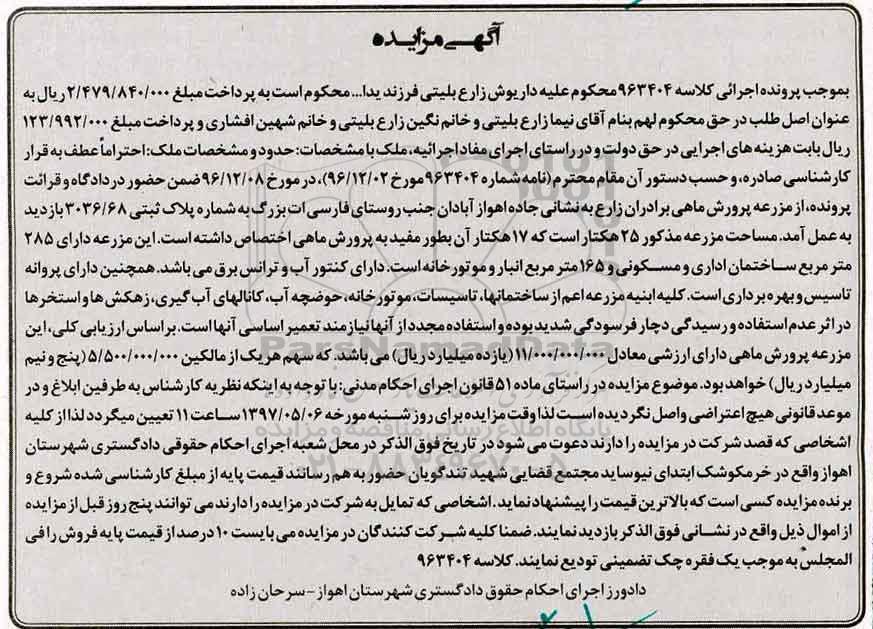 آگهی مزایده
بموجب پرونده اجرائی کلاسه ۹۶۳۴۰۴ محکوم علیه داریوش زارع بلیتی فرزند یدا... محکوم است به پرداخت مبلغ ۲/۴۷۹/۸۴۰/۰۰۰ ریال به
عنوان اصل طلب در حق محکوم لهم بنام آقای نیما زارع بلیتی و خانم نگین زارع بلیتی و خانم شهین افشاری و پرداخت مبلغ ۱۲۳/۹۹۲/۰۰۰
ریال بابت هزینه های اجرایی در حق دولت و در راستای اجرای مفاد اجرائیه، ملک با مشخصات: حدود و مشخصات ملک: احتراماً عطف به قرار
کارشناسی صادره، و حسب دستور آن مقام محترم (نامه شماره ۹۶۳۴۰۴ مورخ ۹۶/۱۲/۰۲)، در مورخ ۹۶/۱۲/۰۸ ضمن حضور در دادگاه و قرائت
پرونده، از مزرعه پرورش ماهی برادران زارع به نشانی جاده اهواز آبادان جنب روستای فارسی ات بزرگ به شماره پلاک ثبتی ۳۰۳۶/۶۸ بازدید
به عمل آمد. مساحت مزرعه مذکور ۲۵ هکتار است که ۱۷ هکتار آن بطور مفید به پرورش ماهی اختصاص داشته است. این مزرعه دارای ۲۸۵
متر مربع ساختمان اداری و مسکونی و ۱۶۵ متر مربع انبار و موتور خانه است. دارای کنتور آب و ترانس برق می باشد. همچنین دارای پروانه
تاسیس و بهره برداری است. کلیه ابنیه مزرعه اعم از ساختمانها، تاسیسات، موتورخانه، حوضچه آب، کانالهای آب گیری، زهکش ها و استخرها
در اثر عدم استفاده و رسیدگی دچار فرسودگی شدید بوده و استفاده مجدد از آنها نیازمند تعمیر اساسی آنها است. بر اساس ارزیابی کلی، این
مزرعه پرورش ماهی دارای ارزشی معادل ۱۱/۰۰۰/۰۰۰/۰۰۰ (یازده میلیارد ریال) می باشد. که سهم هر یک از مالکین ۵/۵۰۰/۰۰۰/۰۰۰ (پنج و نیم
میلیارد ریال) خواهد بود. موضوع مزایده در راستای ماده ۵۱ قانون اجرای احکام مدنی: با توجه به اینکه نظریه کارشناس به طرفین ابلاغ و در
موعد قانونی هیچ اعتراضی واصل نگردیده است لذا وقت مزایده برای روز شنبه مورخه ۱۳۹۷/۰۵/۰۶ ساعت ۱۱ تعیین میگردد لذا از کلیه
اشخاصی که قصد شرکت در مزایده را دارند دعوت می شود در تاریخ فوق الذکر در محل شعبه اجرای احکام حقوقی دادگستری شهرستان
اهواز واقع در خرمکوشک ابتدای نیوساید مجتمع قضایی شهید تندگویان حضور به هم رسانند قیمت پایه از مبلغ کارشناسی شده شروع و
برنده مزایده کسی است که بالاترین قیمت را پیشنهاد نماید. اشخاصی که تمایل به شرکت در مزایده را دارند می توانند پنج روز قبل از مزایده
از اموال ذیل واقع در نشانی فوق الذکر بازدید نمایند. ضمنا کلیه شرکت کنندگان در مزایده می بایست ۱۰ درصد از قیمت پایه فروش را فی
المجلس به موجب یک فقره چک تضمینی تودیع نمایند. کلاسه ۹۶۳۴۰۴
دادورز اجرای احکام حقوق دادگستری شهرستان اهواز - سرحان زاده
ParsNamadData
پایگاه اطلاع رسانی مناقصه و مزایده